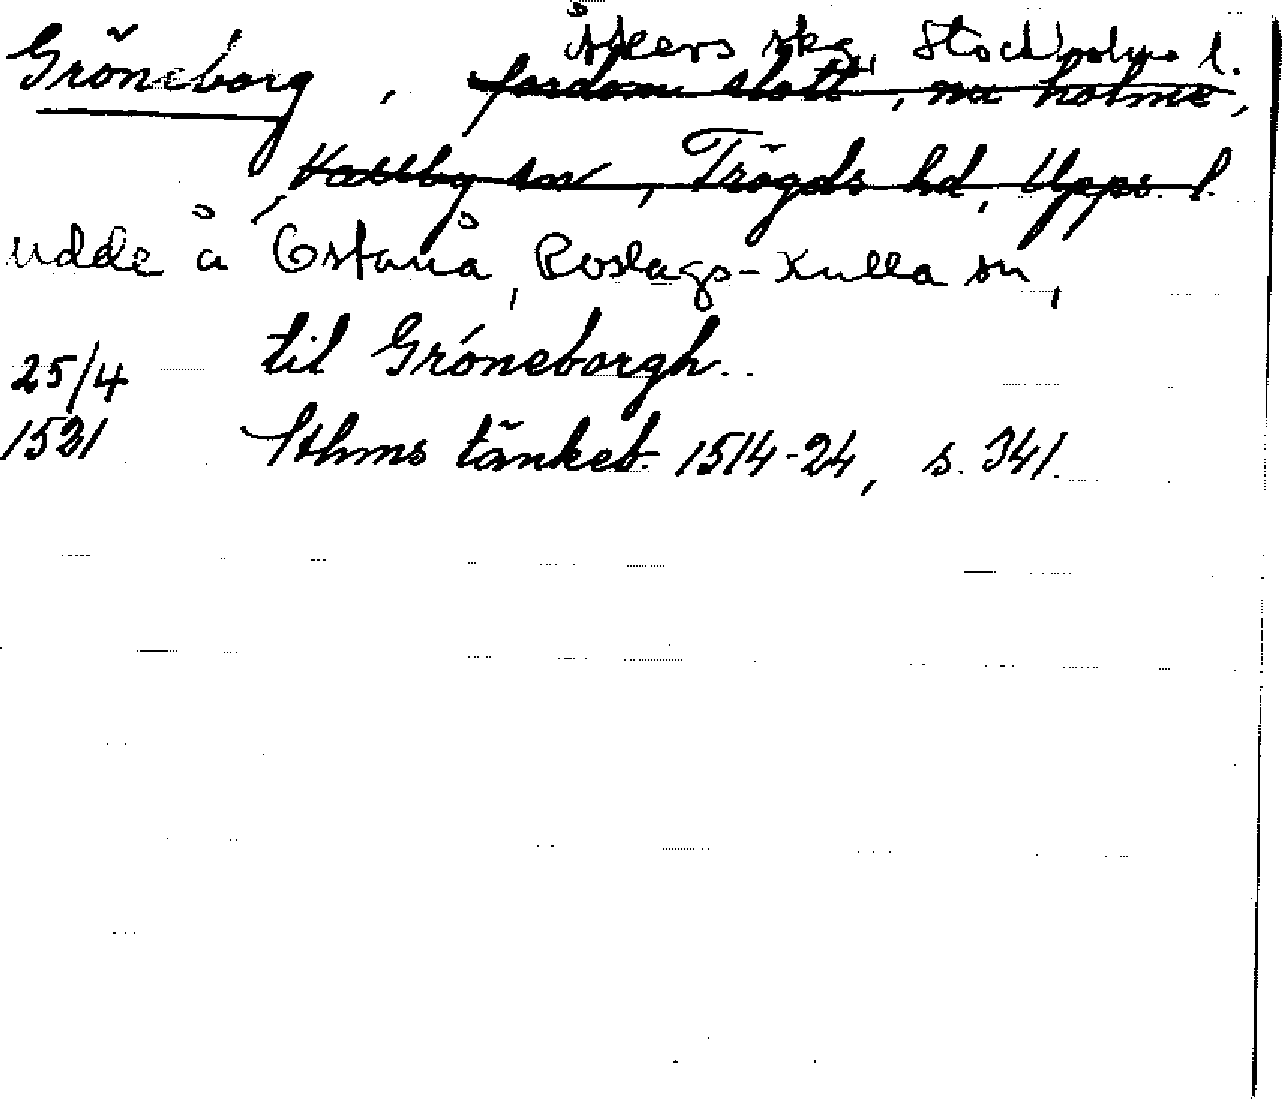 Åkers skg, Stockholms l.
Gröneborg, fordom slott, nu holme,
Vallby sn, Trögds hd, Upps. l.
udde å Östanå, Roslags-Kulla sn,
25/4 til Gröneborgh..
1521 Sthms tänkeb. 1514-24, s. 341.